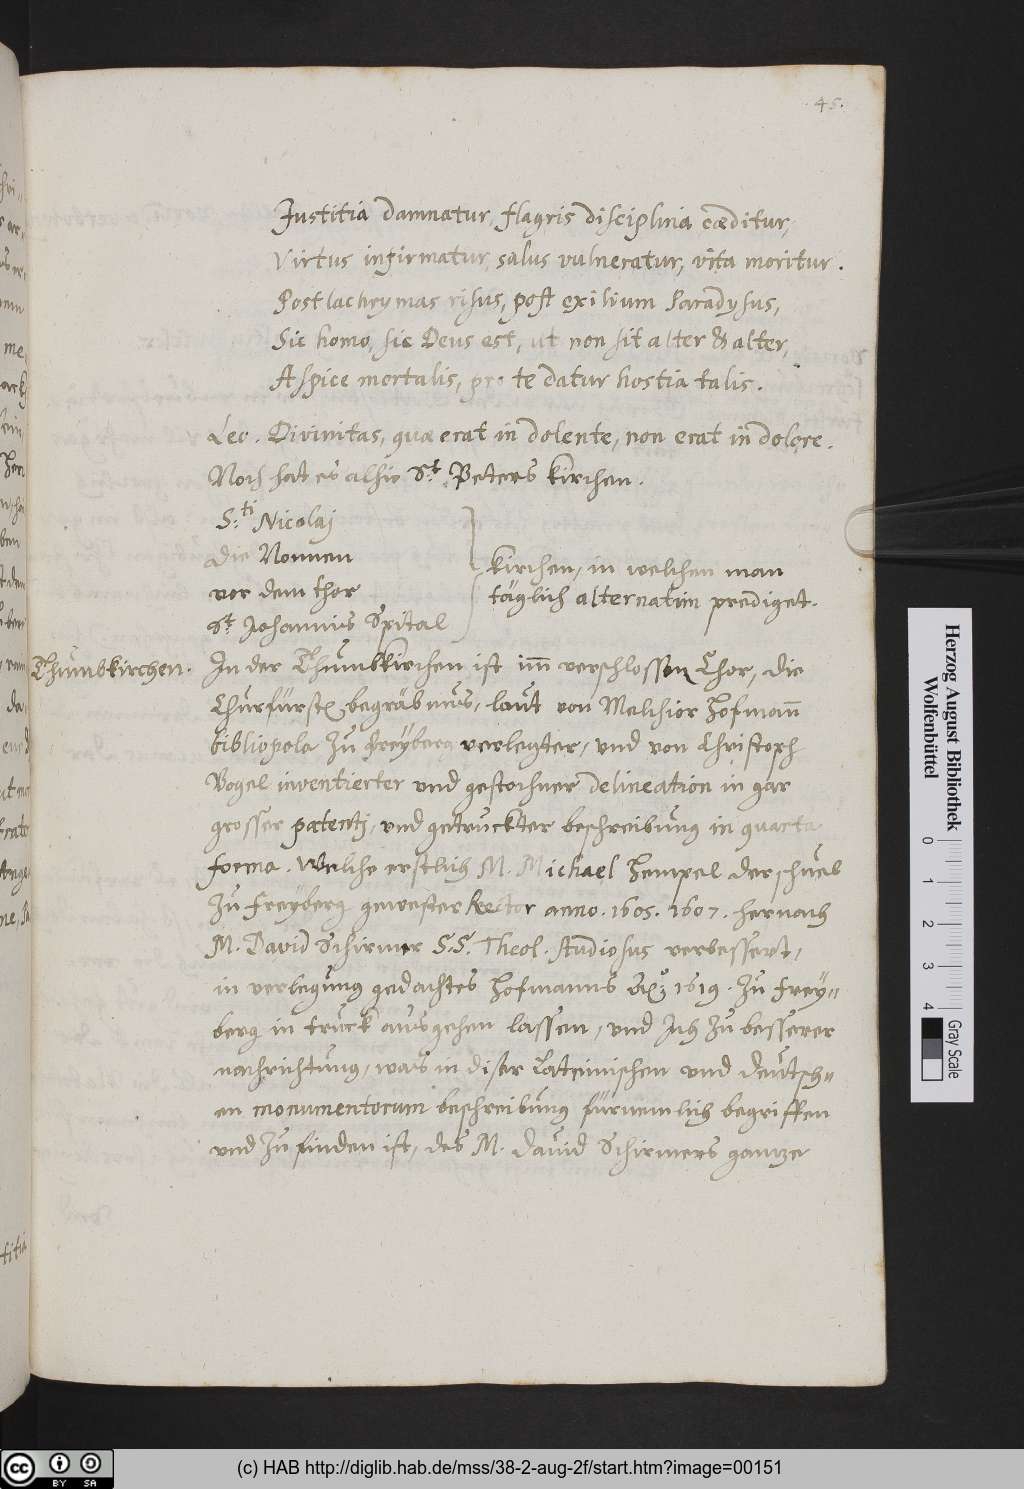 45.
Justitia damnatur, flagris disciplina cæditur,
Virtus infirmatur, salus vulneratur, vita moritur.
Post lachrymas risus, post exilium Paradysus,
Sic homo, sic Deus est, ut non sit alter & alter,
Aspice mortalis, pro te datur hostia talis.
Leo. Divinitas, quæ erat in dolente, non erat in dolore.
Noch hat es alhie St. Peters kirchen.
S:ti Nicolaj
die Nonnen
vor dem thor
St. Johannis Spital
kirchen, in welchen man
täglich alternatim prediget.
Thumbkirchen.
In der Thumbkirchen ist im̄ verschlossen Chor, die
Churfürstl. begräbnus, laut von Melchior Hofman̄
bibliopola zu Freyberg verlegter, und von Christoph
Vogel inventierter und gestochner delineation in gar
grosser patenti, und getruckter beschreibung in quarta
forma. Welche erstlich M. Michael Hempel der schuel
zu Freyberg gewester Rector anno. 1605. 1607. hernach
M. David Schirmer S.S. Theol. studiosus verbessert,
in verlegung gedachtes Hofmanns 1619. zu Frey=
berg in truck ausgehen lassen, und Ich zu besserer
nachrichtung, was in diser Lateinischen und deutsch=
en monumentorum beschreibung fürnemlich begriffen
und zu finden ist, des M. David Schirmers gantze
Herzog August Bibliothek
Wolfenbüttel
0 1 2 3 4
Gray Scale
(c) HAB http://diglib.hab.de/mss/38-2-aug-2f/start.htm?image=00151
cc BY SA